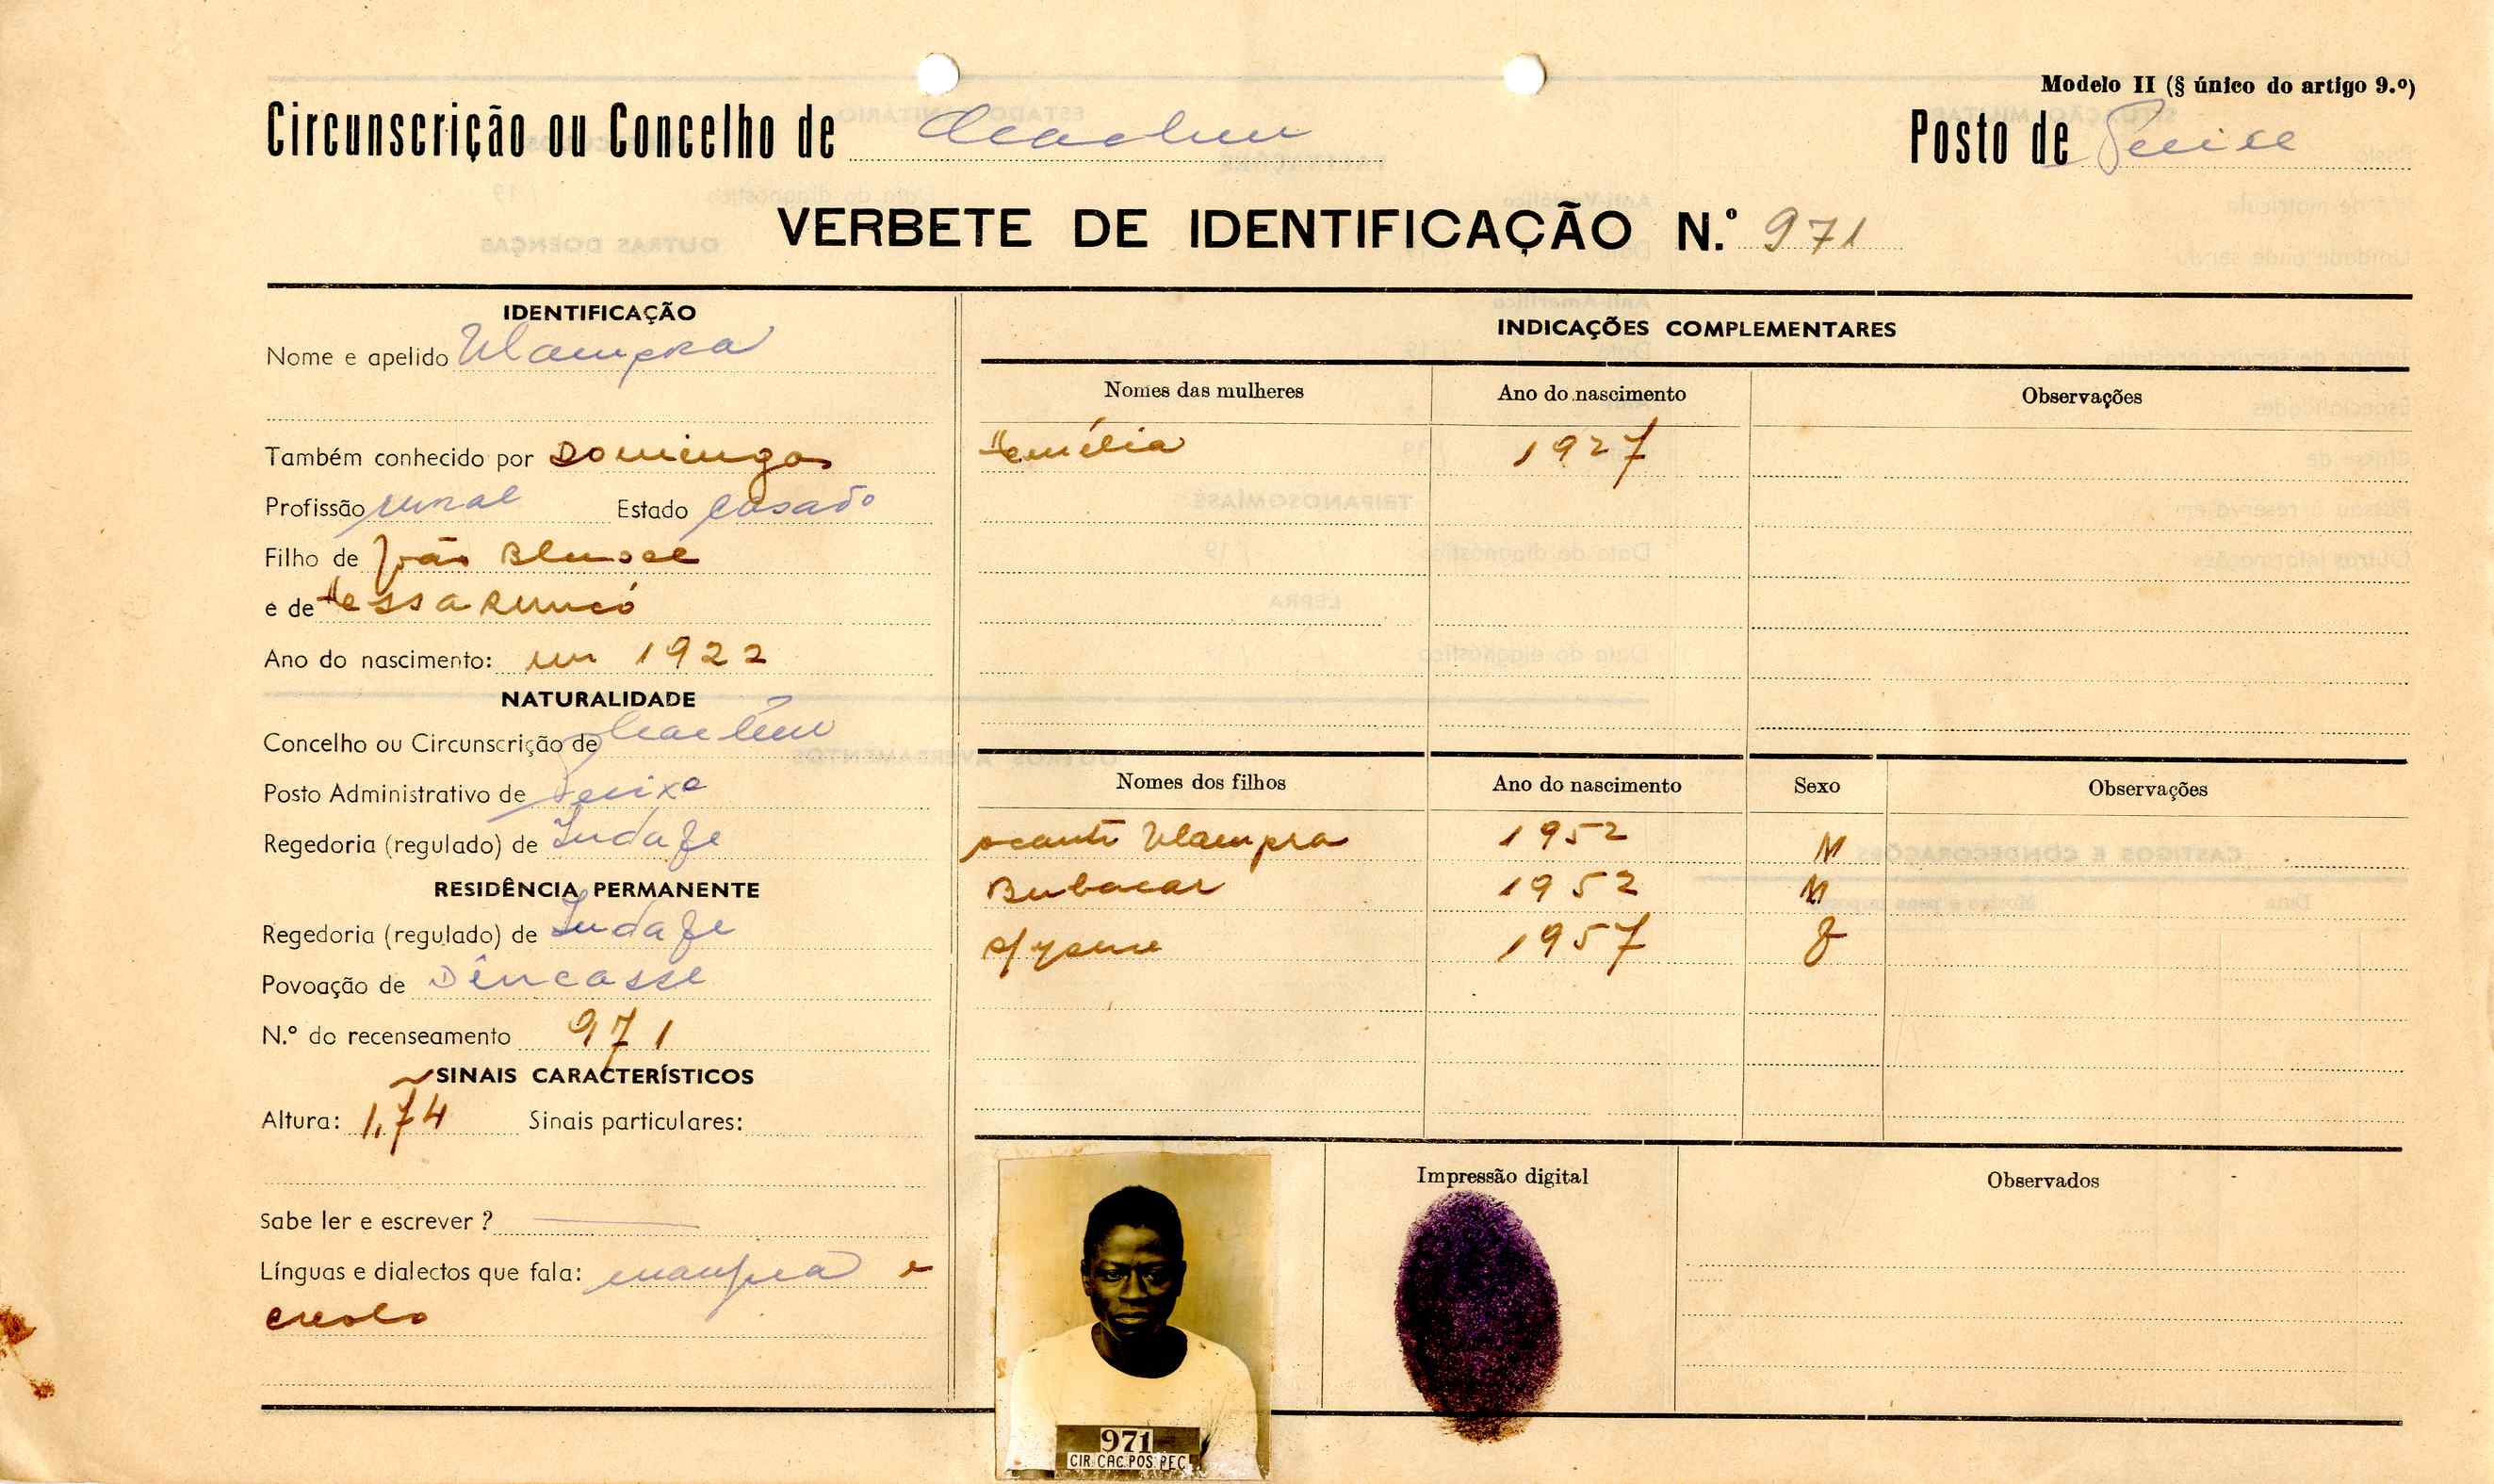 Modelo II (§ único do artigo 9.º)
Circunscrição ou Concelho de Cacheu
Posto de Pecixe
VERBETE DE IDENTIFICAÇÃO N.º 971
IDENTIFICAÇÃO
Nome e apelido Ulampra
Também conhecido por Domingos
Profissão rural Estado casado
Filho de João
e de
Ano do nascimento: em 1922
NATURALIDADE
Concelho ou Circunscrição de Cacheu
Posto Administrativo de Pecixe
Regedoria (regulado) de Indafe
RESIDÊNCIA PERMANENTE
Regedoria (regulado) de Indafe
Povoação de Dêncasse
N.º do recenseamento 971
SINAIS CARACTERÍSTICOS
Altura: 1,74 Sinais particulares:
Sabe ler e escrever ?
Línguas e dialectos que fala: e
creolo
INDICAÇÕES COMPLEMENTARES
Nomes das mulheres Ano do nascimento Observações
1927
Nomes dos filhos Ano do nascimento Sexo Observações
Ulampra 1952 M
Bubacar 1952 M
1957 f
Impressão digital
Observados
971
CIR.CAC.POS.PEC